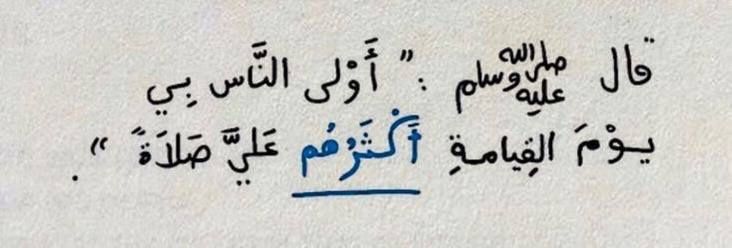 قال صلى الله عليه وسلم : " أَوْلى النَّاس بِي
يوْمَ القِيامةِ أَكْثَرُهُم عَليَّ صَلاَةً " .